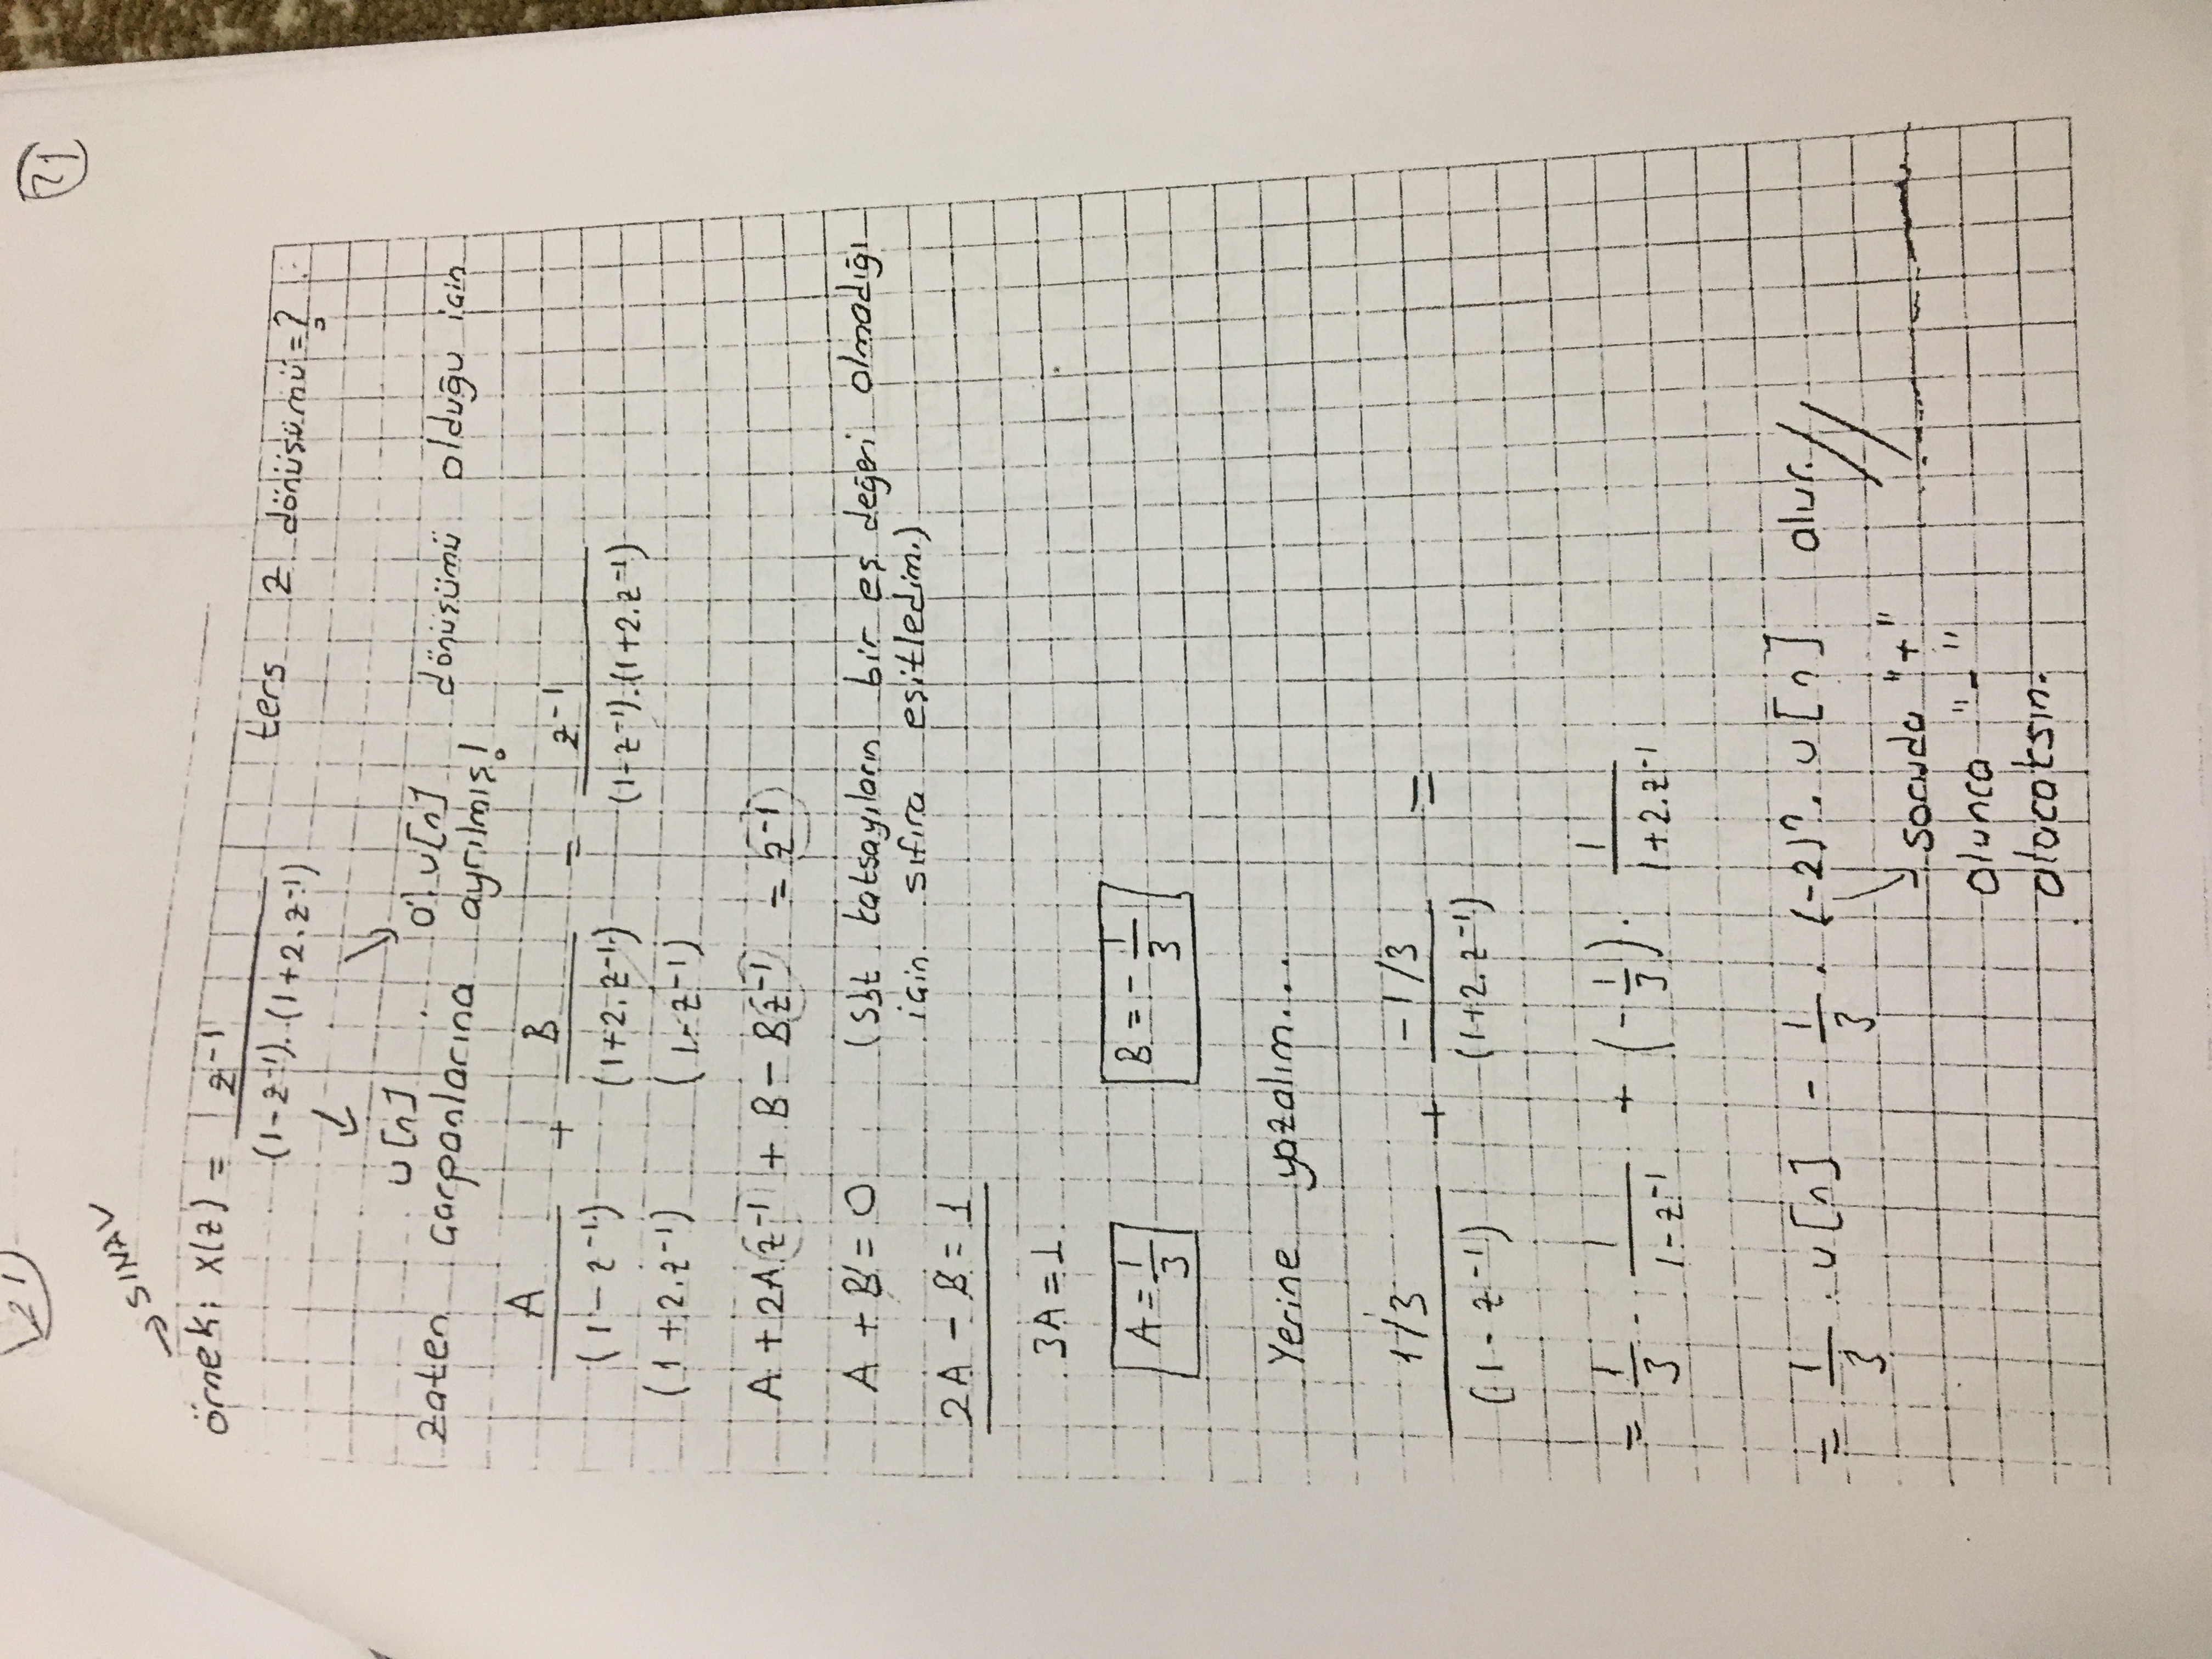 21
21
→ SINAV
örnek: X(z) = z⁻¹ / (1-z⁻¹).(1+2.z⁻¹) ters z dönüşümü=?
u[n] aⁿ.u[n] dönüşümü olduğu için
zaten çarpanlarına ayrılmış!
A / (1-z⁻¹) + B / (1+2.z⁻¹) = z⁻¹ / (1-z⁻¹).(1+2.z⁻¹)
(1+2.z⁻¹) (1-z⁻¹)
A + 2Az⁻¹ + B - Bz⁻¹ = z⁻¹
A + B = 0 (Sbt katsayıların bir eş değeri olmadığı
için sıfıra eşitledim.)
2A - B = 1
3A = 1
A = 1/3 B = -1/3
Yerine yazalım...
1/3 / (1-z⁻¹) + -1/3 / (1+2.z⁻¹) =
= 1/3 . 1/1-z⁻¹ + (-1/3) . 1/1+2.z⁻¹
= 1/3 . u[n] - 1/3 . (-2)ⁿ. u[n] olur.//
→ soruda "+"
olunca "-"
alacaksın.